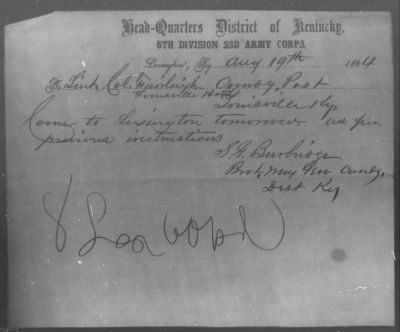 Head-Quarters District of Kentucky,
6TH DIVISION 23D ARMY CORPS,
Lexington, Ky. Aug 19th 1864
To Lieut Col. Fairleigh Comdg Post
Louisville Ky.
Come to Lexington tomorrow as per
previous instructions
S. G. Burbridge
Brvt Maj Gen Comdg
Dist Ky